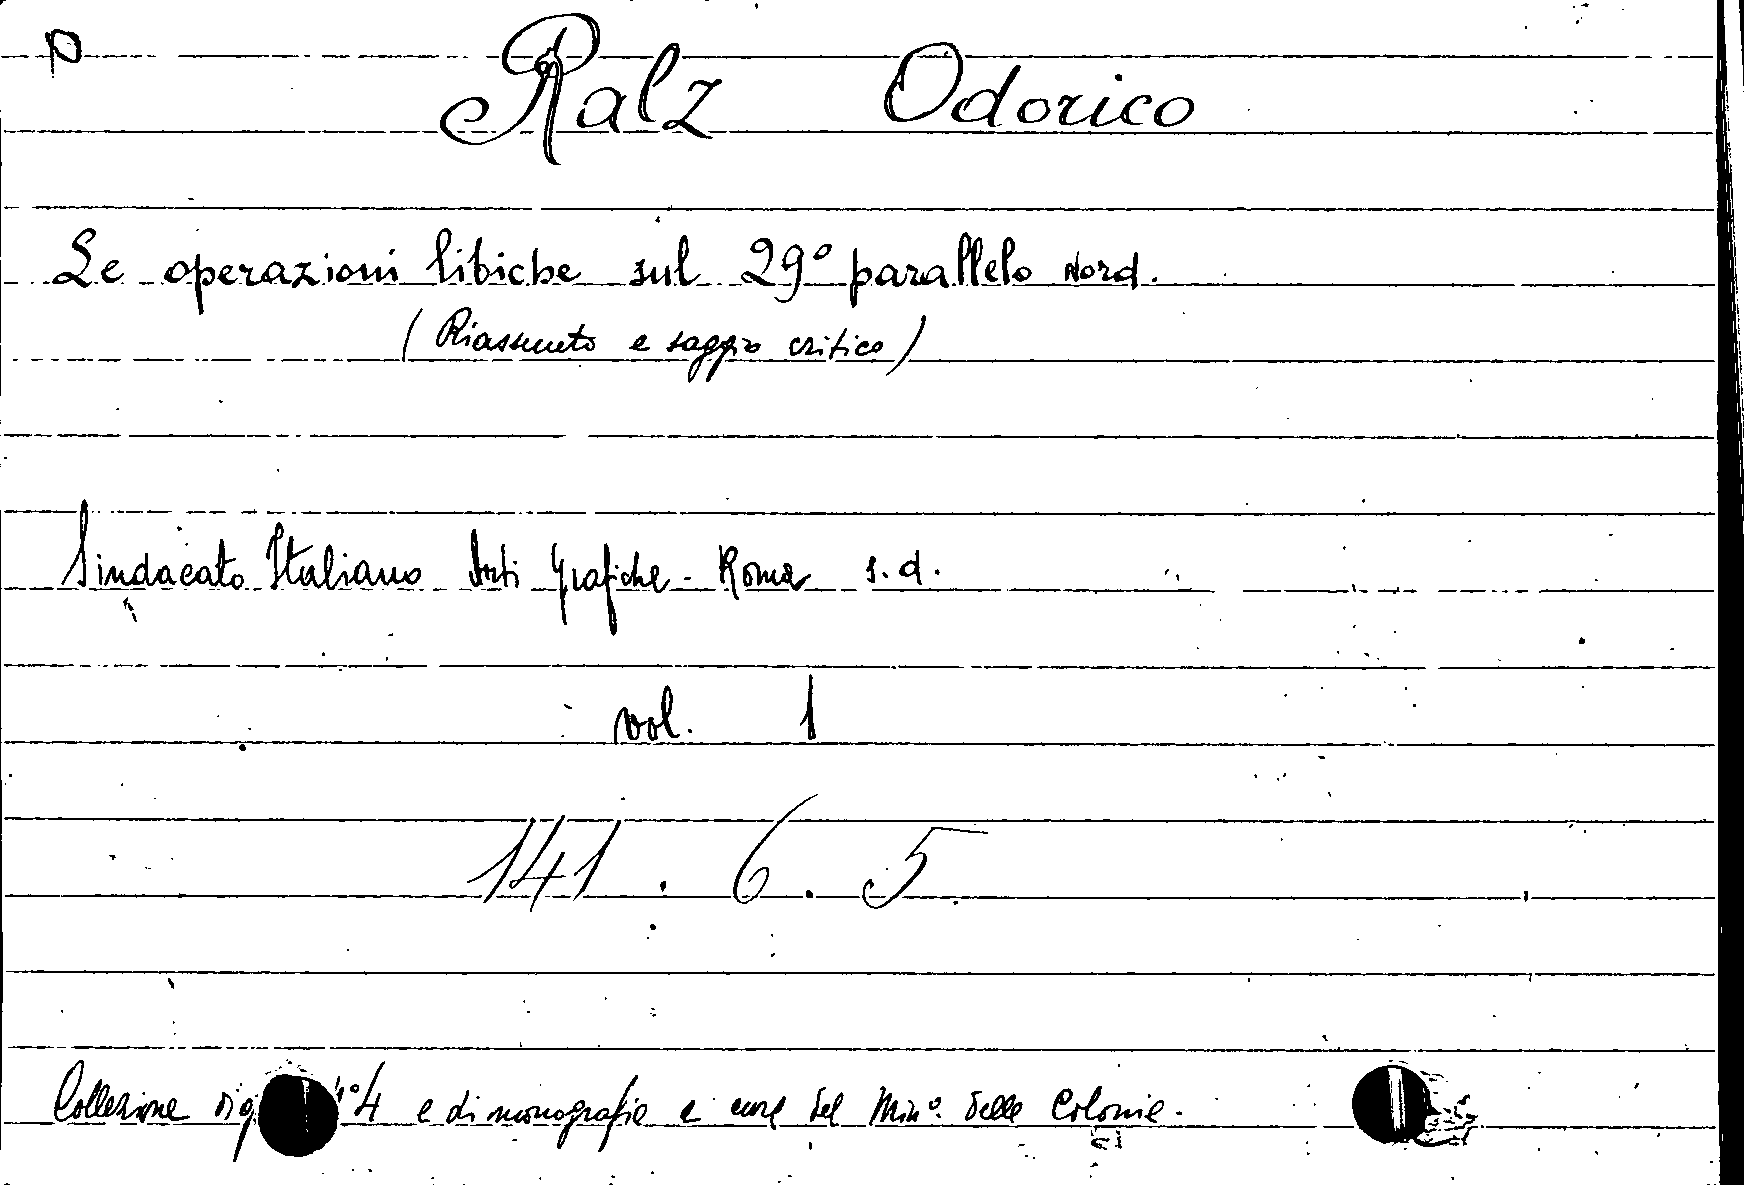 P
Ralz Odorico
Le operazioni libiche sul 29° parallelo Nord.
(Riassunto e saggio critico)
Sindacato Italiano Arti Grafiche - Roma s. d.
vol. 1
141 . 6 . 5
Collezione n°4 e di monografie a cura del Min°. delle Colonie.